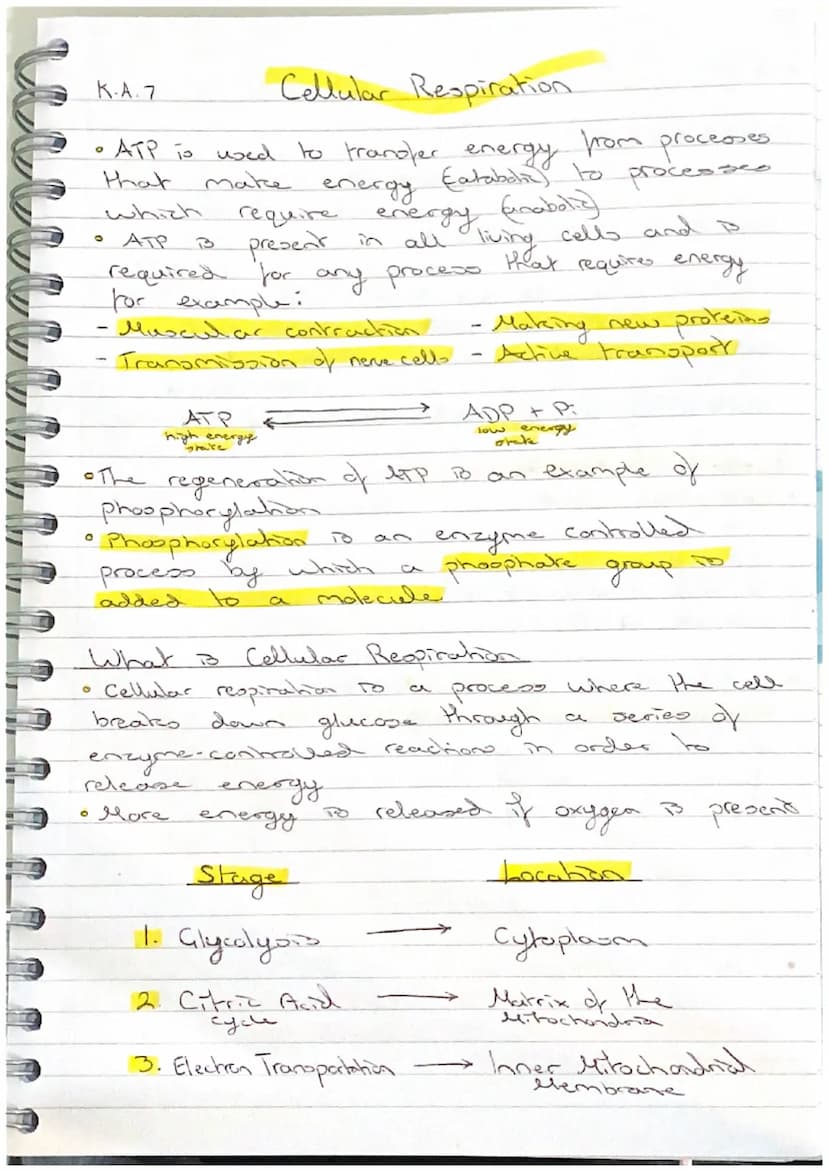 K.A.7 Cellular Respiration
• ATP is used to transfer energy from processes
that make energy (catabolic) to processes
which require energy (anabolic)
• ATP is present in all living cells and is
required for any process that requires energy
for example:
- Muscular contraction - Making new proteins
- Transmission of nerve cells - Active transport
ATP ⇌ ADP + Pi
high energy state low energy state
• The regeneration of ATP is an example of
phosphorylation
• Phosphorylation is an enzyme controlled
process by which a phosphate group is
added to a molecule
What is Cellular Respiration
• Cellular respiration is a process where the cell
breaks down glucose through a series of
enzyme-controlled reactions in order to
release energy
• More energy is released if oxygen is present
Stage Location
1. Glycolysis → Cytoplasm
2. Citric Acid → Matrix of the
Cycle Mitochondria
3. Electron Transportation → Inner Mitochondrial
Membrane